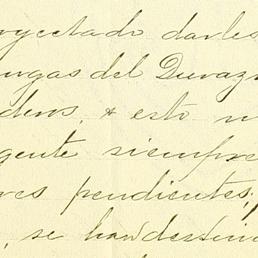 oyectado darles
urgas del Durazn
deros, & esto n
gente siempre
es pendientes;
, se han destina